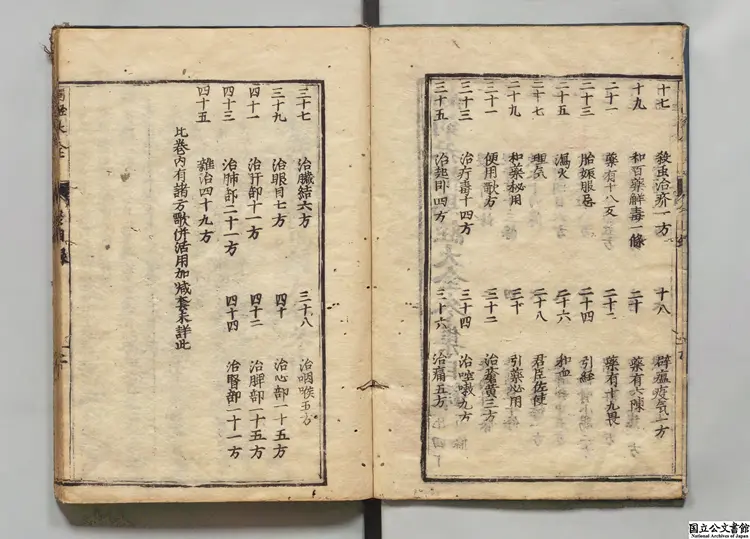 十七 殺虫治疥一方 十八 辟瘟疫氣二方
十九 和百藥解毒一條 二十 藥有六陳
二十一 藥有十八反 二十二 藥有十九畏
二十三 胎娠服忌 二十四 引經
二十五 瀉火 二十六 和血
二十七 理氣 二十八 君臣佐使
二十九 和藥秘用 三十 引藥必用
三十一 便用歌方 三十二 治瘡黃三方
三十三 治疔毒十四方 三十四 治啌嗽九方
三十五 治起卧四方 三十六 治痛五方
三十七 治臟結六方 三十八 治咽喉五方
三十九 治眼目七方 四十 治心部一十五方
四十一 治肝部一十一方 四十二 治脾部一十五方
四十三 治肺部二十一方 四十四 治腎部一十一方
四十五 雜治四十九方
此卷内有諸方歌併活用加減套未詳此
大全
目錄
国立公文書館
National Archives of Japan